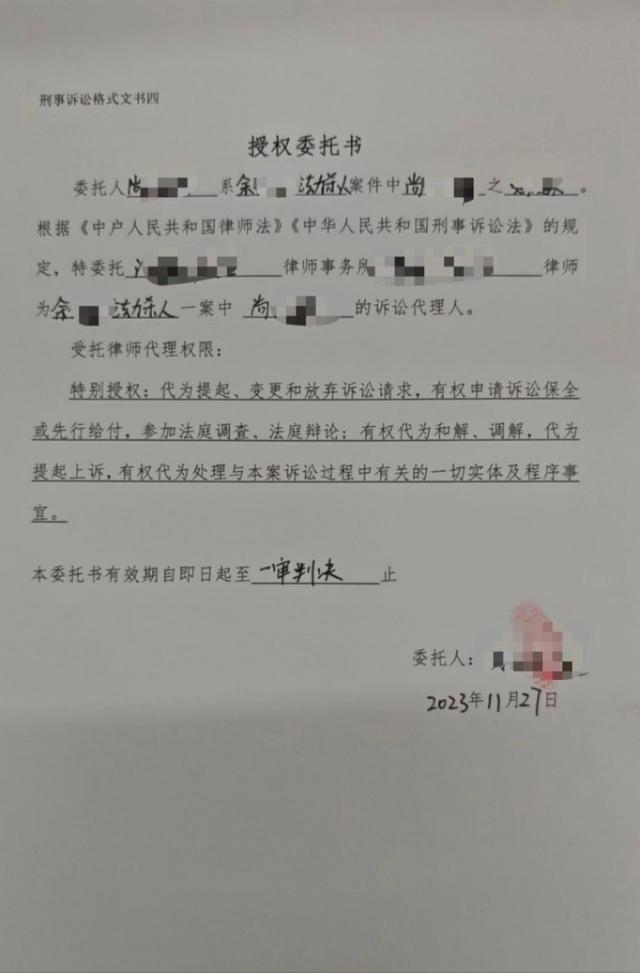 刑事诉讼格式文书四
授权委托书
委托人尚 系余 故杀人案件中尚 之 。
根据《中户人民共和国律师法》《中华人民共和国刑事诉讼法》的规
定，特委托 律师事务所 律师
为余 故杀人一案中 尚 的诉讼代理人。
受托律师代理权限：
特别授权：代为提起、变更和放弃诉讼请求，有权申请诉讼保全
或先行给付，参加法庭调查、法庭辩论；有权代为和解、调解，代为
提起上诉，有权代为处理与本案诉讼过程中有关的一切实体及程序事
宜。
本委托书有效期自即日起至一审判决止
委托人：
2023年11月27日